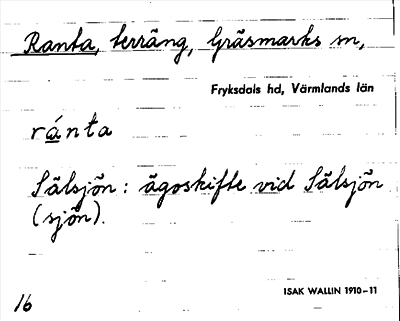 Ranta, terräng, Gräsmarks sn,
Fryksdals hd, Värmlands län
ránta
Sälsjön: ägoskifte vid Sälsjön
(sjön).
ISAK WALLIN 1910-11
16